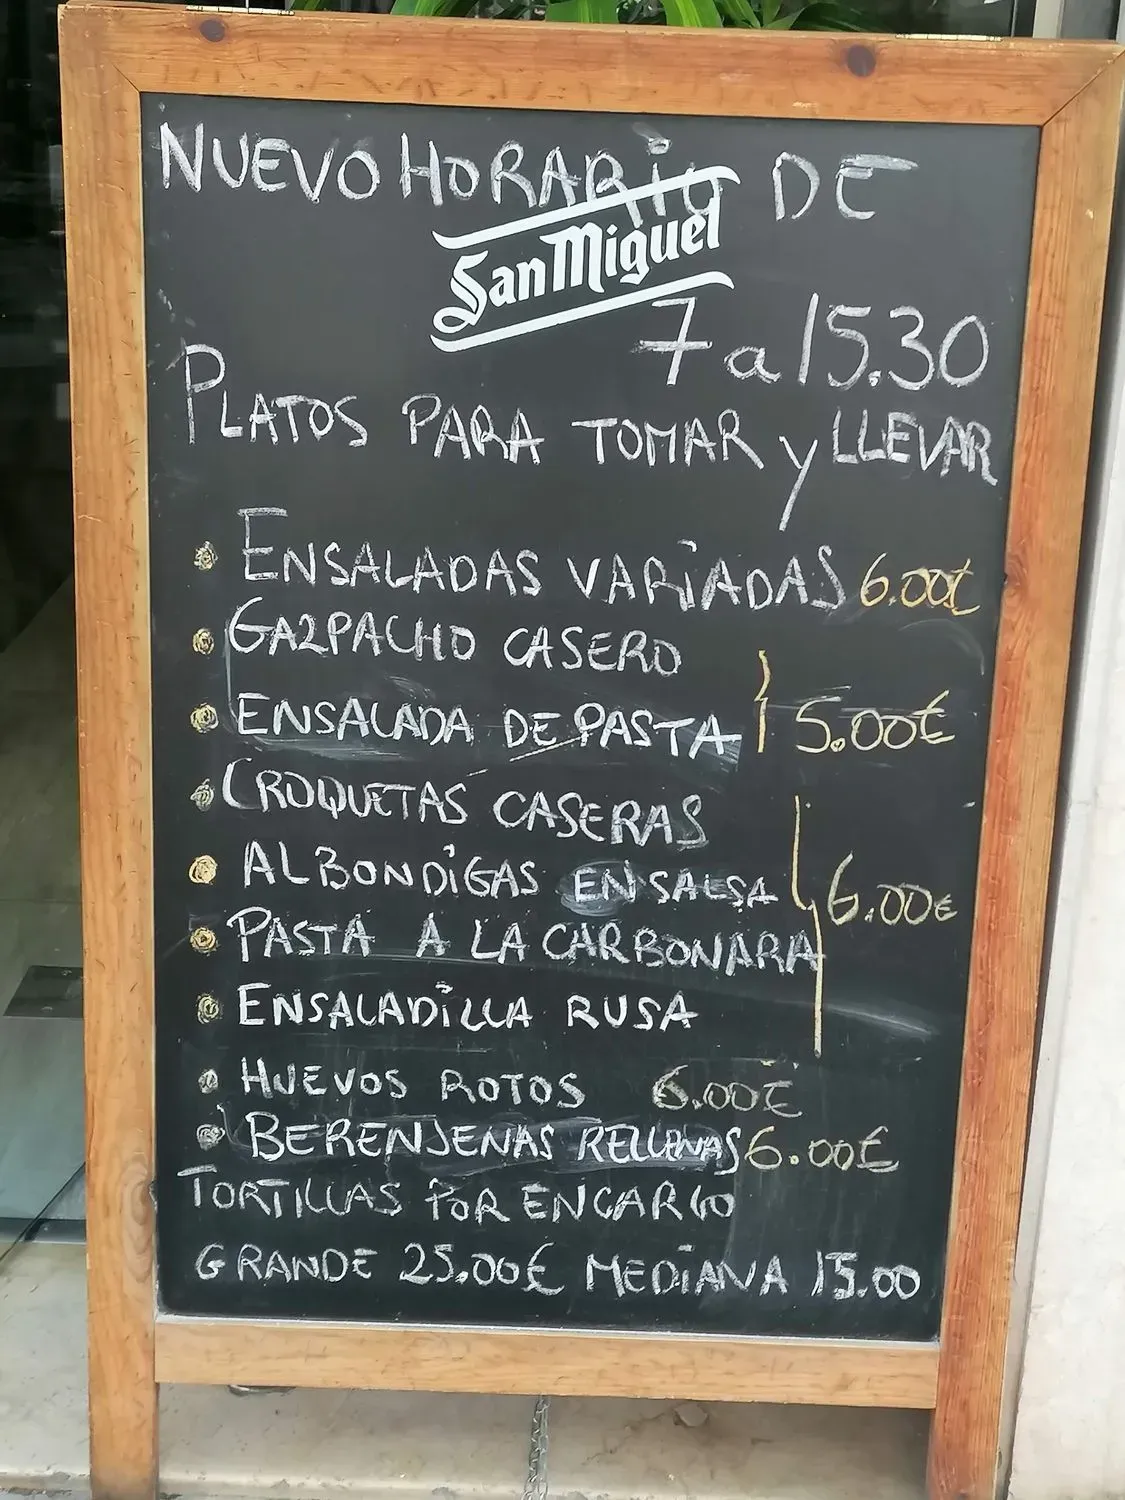 NUEVO HORARiO DE
San Miguel
7 a 15.30
PLATOS PARA TOMAR y LLEVAR
ENSALADAS VARiADAS 6.00€
GAZPACHO CASERO
ENSALADA DE PASTA 5.00€
CROQUETAS CASERAS
ALBONDiGAS EN SALSA
6.00€
PASTA A LA CARBONARA
ENSALADiLLA RUSA
HUEVOS ROTOS 6.00€
BERENJENAS RELLENAS 6.00€
TORTILLAS POR ENCARGO
GRANDE 25.00€ MEDiANA 15.00